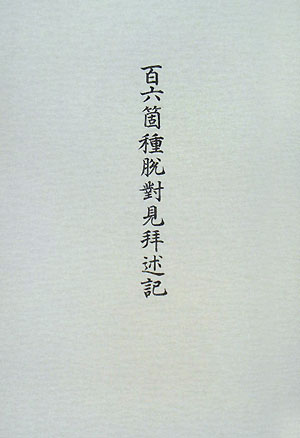 百六箇種脱對見拜述記